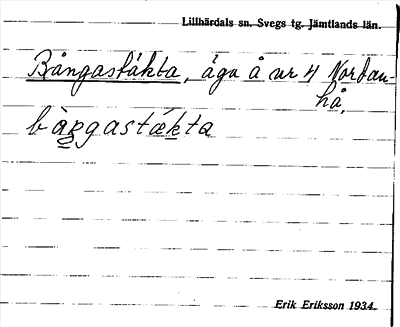 Lillhärdals sn. Svegs tg. Jämtlands län.
Bångastäkta, äga å nr 4 Nordan-
hå.
bàŋgastækta
Erik Eriksson 1934.